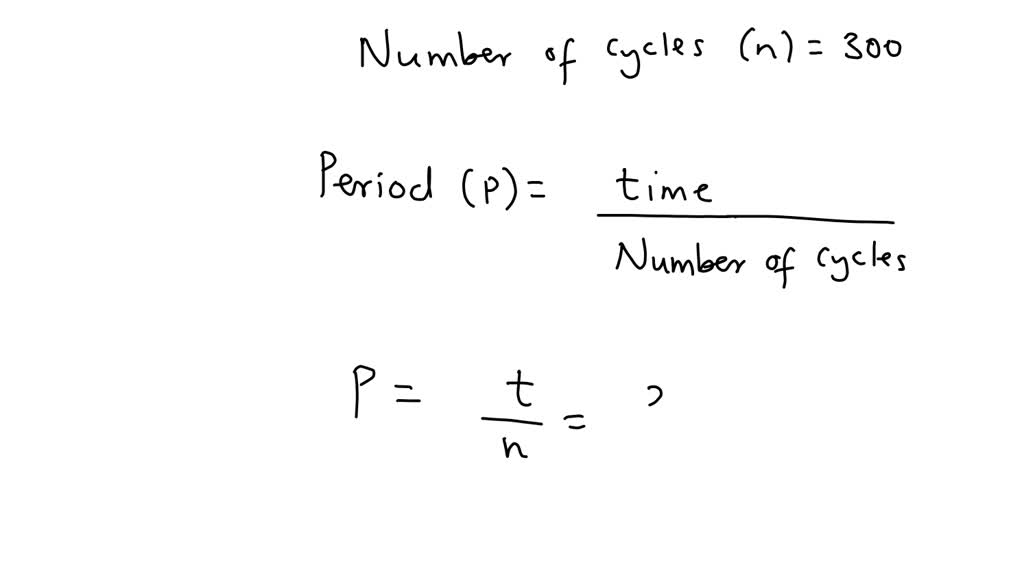 Number of cycles (n) = 300
Period (P) = time / Number of cycles
P = t / n =